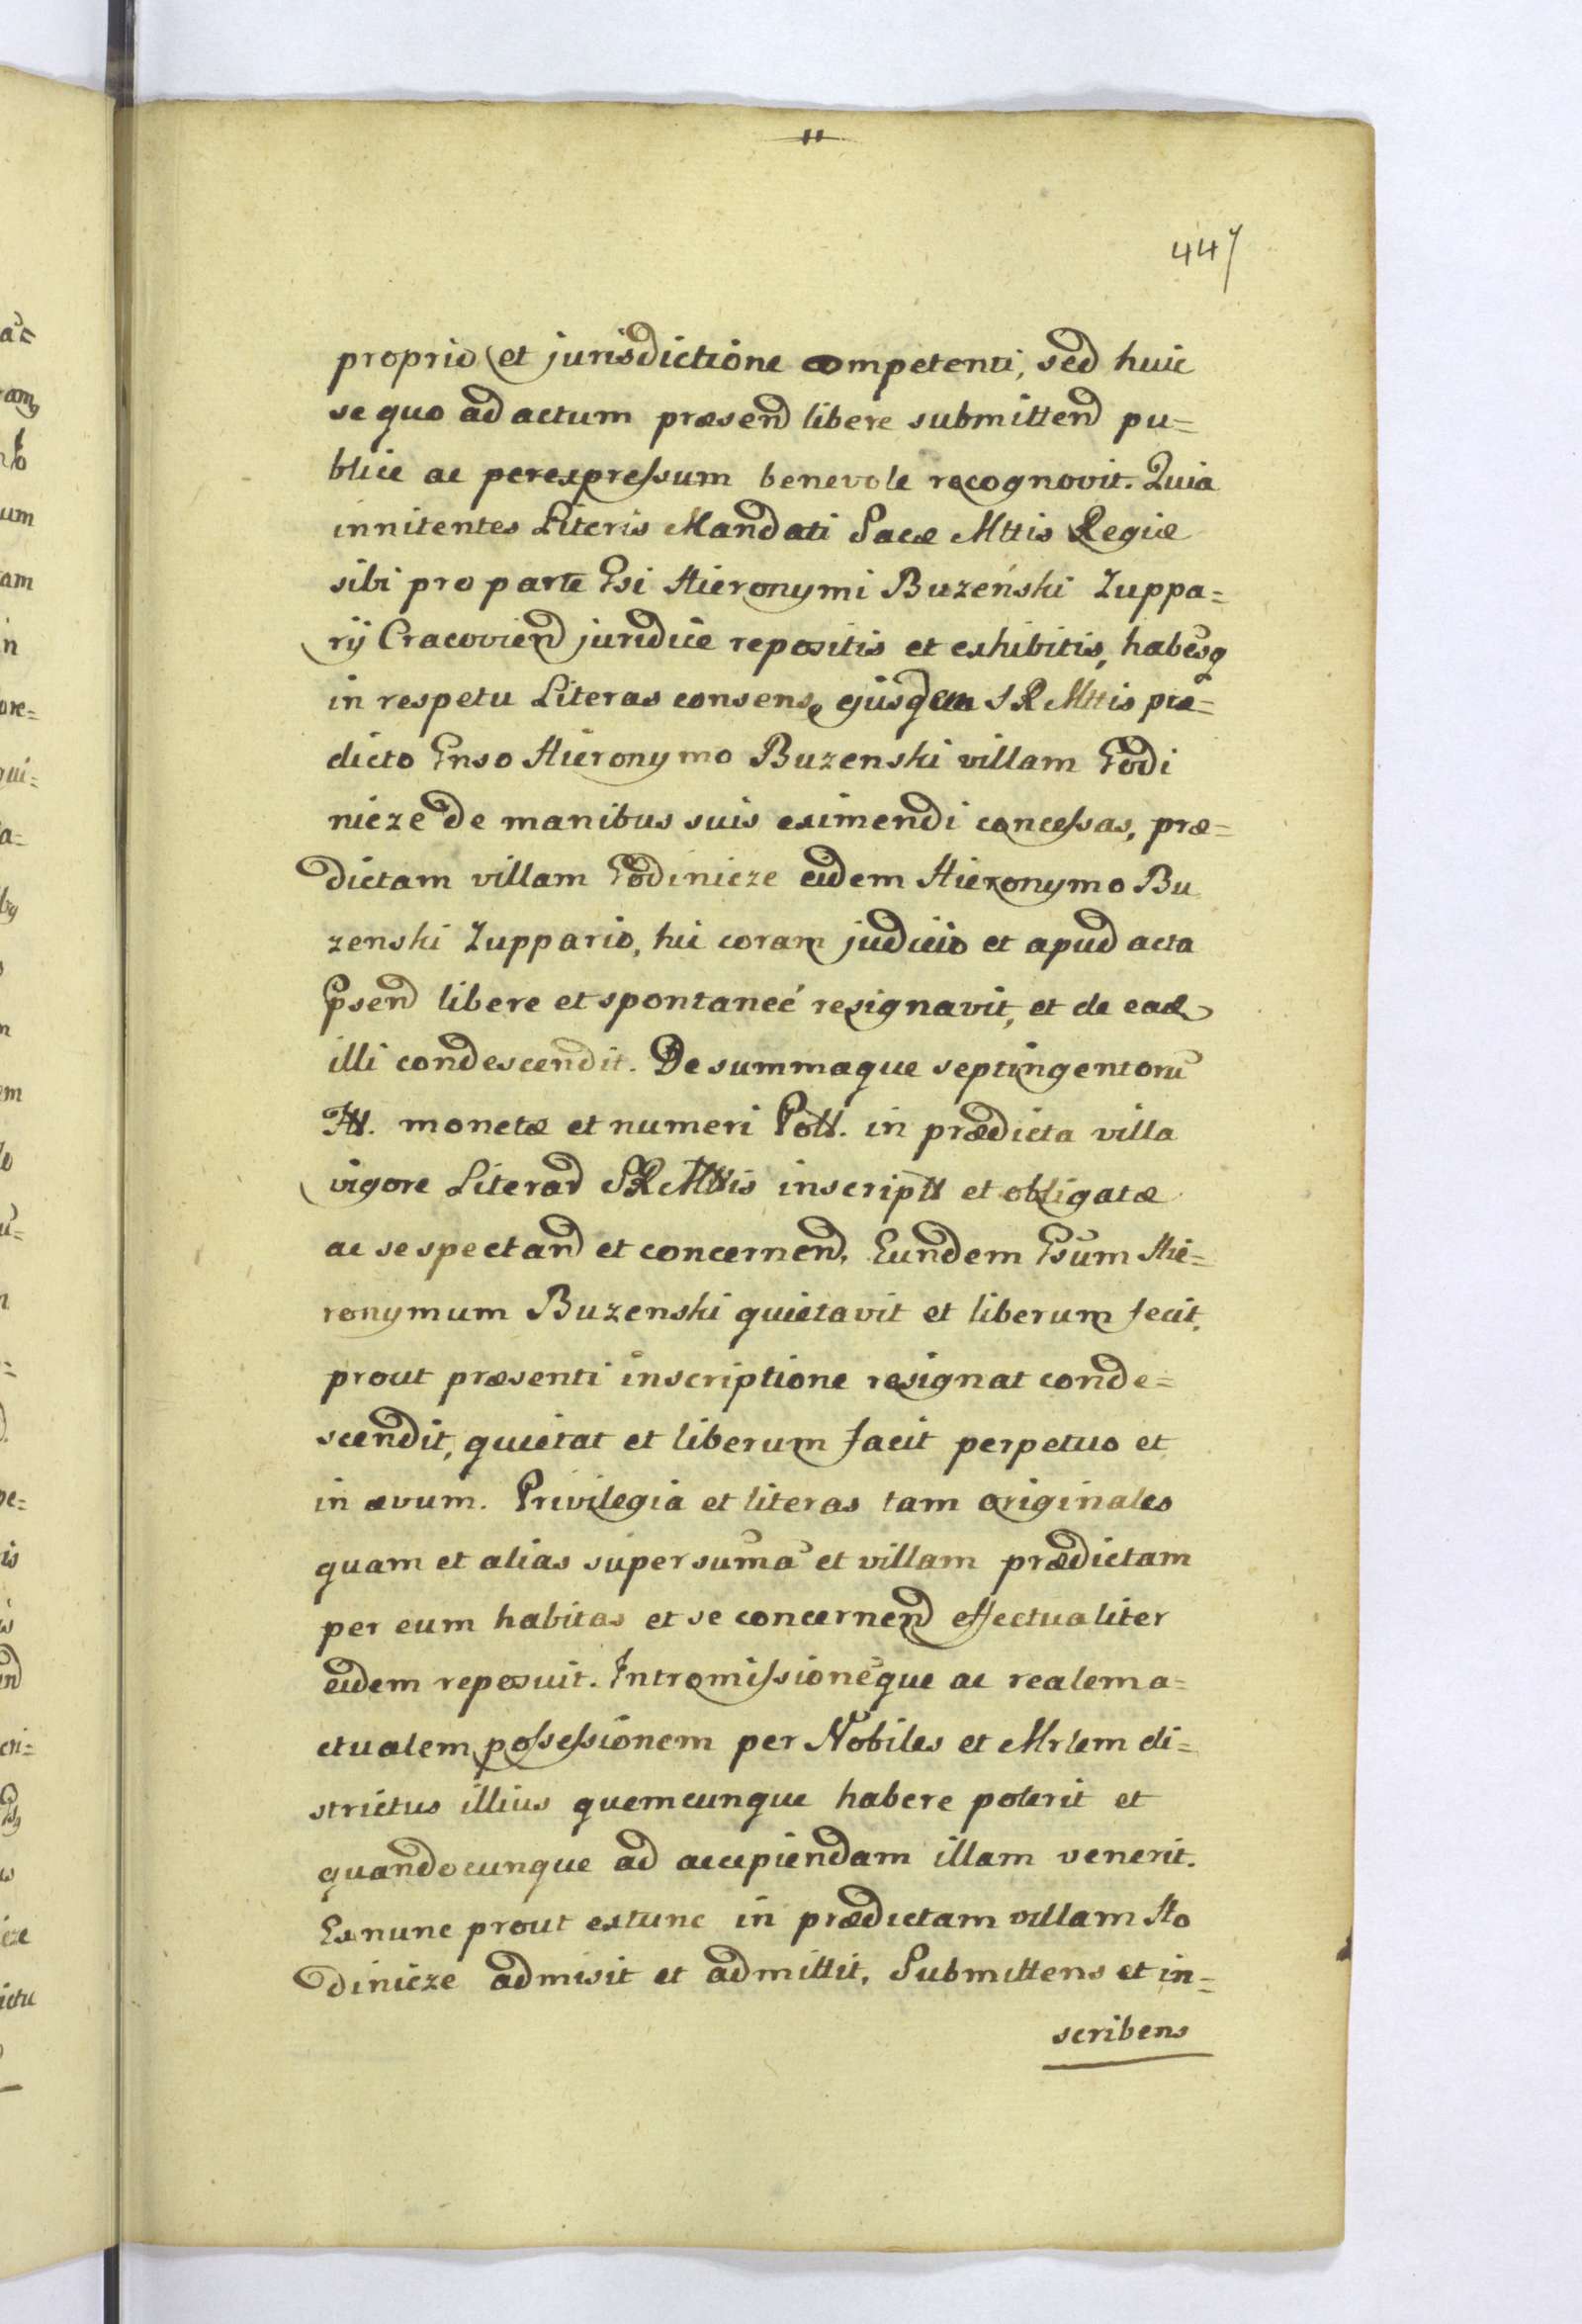 447
proprio et jurisdictione competenti, sed huic
se quo ad actum præsend libere submittend pu=
blice ac perexpressum benevole recognovit. Quia
innitentes Literis Mandati Sacæ Mttis Regiæ
sibi pro parte Gsi Hieronymi Buzeński Zuppa=
rij Cracoviend juridice repositis et exhibitis, habēsq
in respetu Literas consens, ejusdem SR Mttis præ=
dicto Gnso Hieronymo Buzenski villam Godi
nicze de manibus suis eximendi concessas, præ=
dictam villam Godinicze eidem Hieronymo Bu
zenski Zuppario, hic coram judicio et apud acta
Psend libere et spontaneé resignavit, et de ead
illi condescendit. De summaque septingentorū
Fll. monetæ et numeri Poll. in prædicta villa
vigore Literar SRMttis inscriptt et obligatæ
ac se spectand et concernend, Eundem Gsum Hie=
ronymum Buzenski quietavit et liberum fecit,
prout præsenti inscriptione resignat conde=
scendit, quietat et liberum facit perpetuo et
in ævum. Privilegia et literas tam originales
quam et alias super sumā et villam prædictam
per eum habitas et se concernend effectualiter
eidem reposuit. Intromissionēque ac realem a=
ctualem possessionem per Nobiles et Mrlem di=
strictus illius quemcunque habere poterit et
quandocunque ad accipiendam illam venerit.
Exnunc prout extunc in prædictam villam Ho
dinicze admisit et admittit, Submittens et in=
scribens